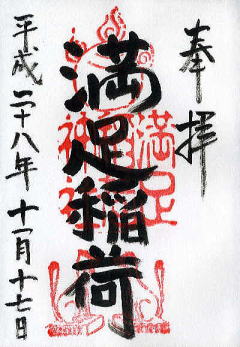 奉拝
満足稲荷
平成二十八年十一月十七日
満足
稲荷
神社